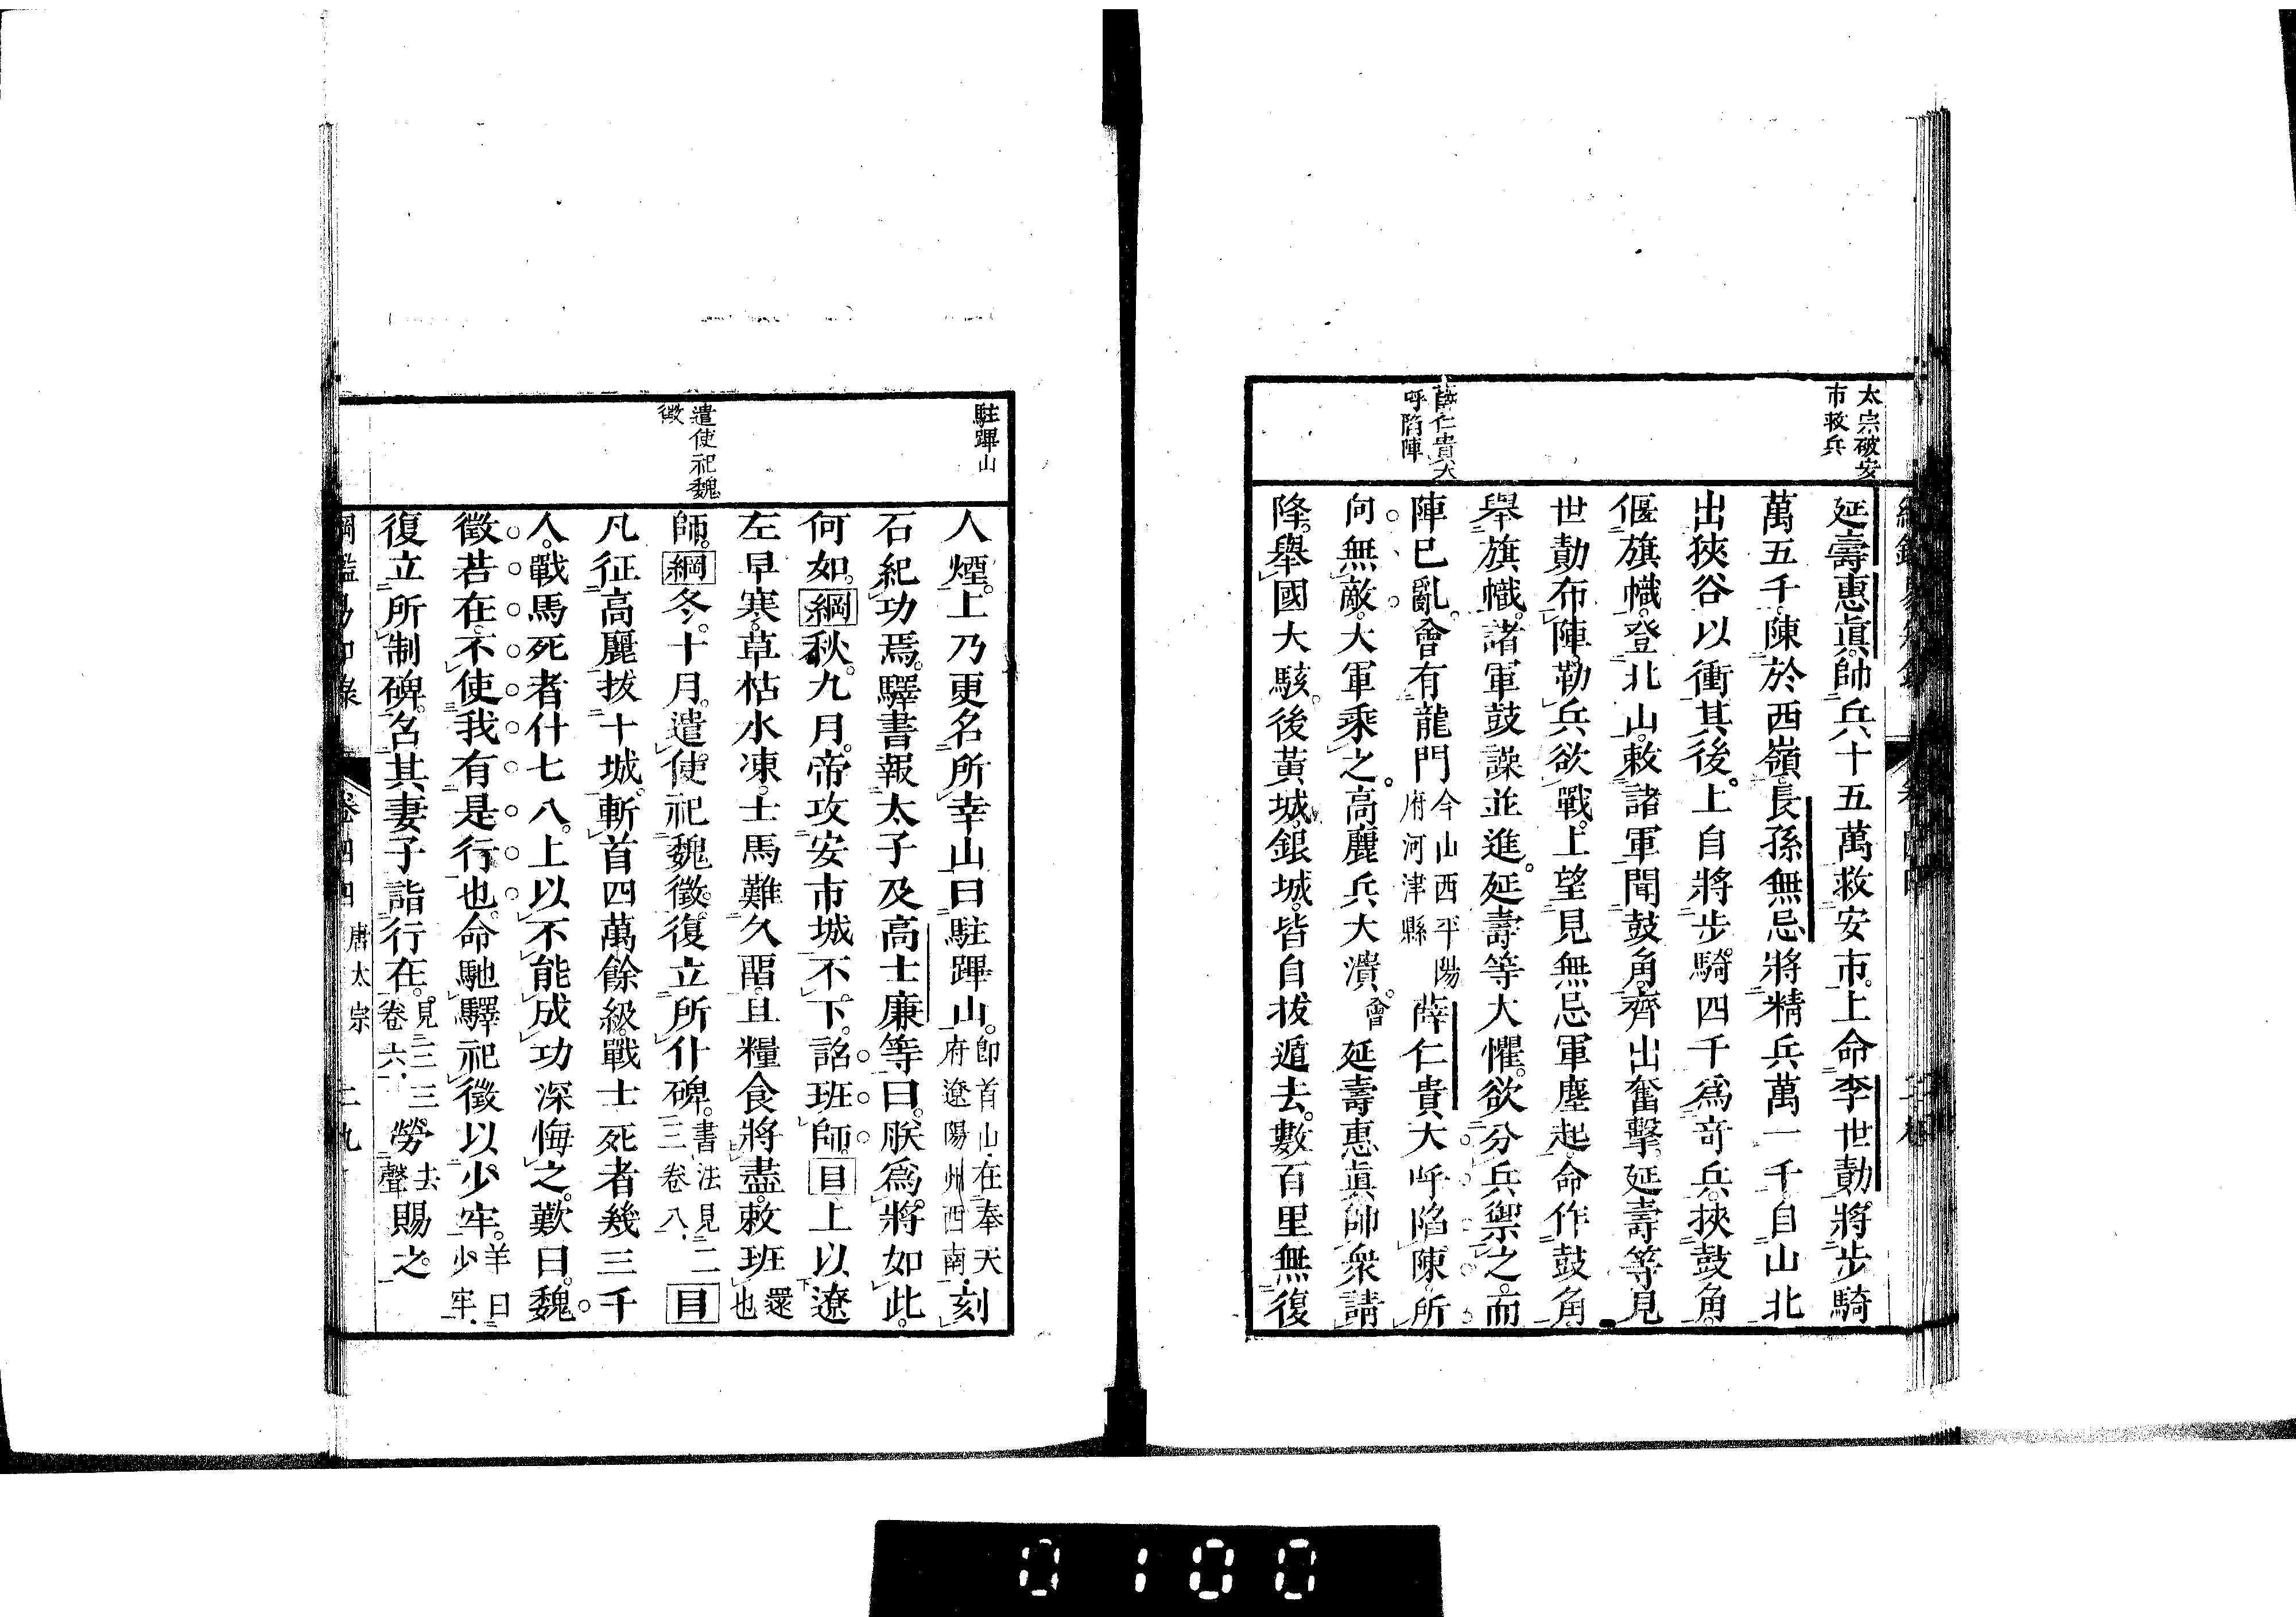 太宗破安
市救兵
延壽惠眞帥兵十五萬救安市上命李世勣將步騎
萬五千陳於西嶺長孫無忌將精兵萬一千自山北
出狹谷以衝其後上自將步騎四千爲奇兵挾鼓角
偃旗幟登北山敕諸軍聞鼓角齊出奮擊延壽等見
世勣布陣勒兵欲戰上望見無忌軍塵起命作鼓角
舉旗幟諸軍鼓譟並進延壽等大懼欲分兵禦之而
薛仁貴大
呼陷陣
陣已亂會有龍門今山西平陽府河津縣薛仁貴大呼陷陳所
向無敵大軍乘之高麗兵大潰會延壽惠眞帥衆請
降舉國大駭後黃城銀城皆自拔遁去數百里無復
駐蹕山
人煙上乃更名所幸山曰駐蹕山卽首山在奉天府遼陽州西南刻
石紀功焉驛書報太子及高士廉等曰朕爲將如此
何如綱秋九月帝攻安市城不下詔班師目上以遼
左早寒草枯水凍士馬難久畱且糧食將盡敕班還也
遣使祀魏
徵
師綱冬十月遣使祀魏徵復立所仆碑書法見二三卷八目
凡征高麗拔十城斬首四萬餘級戰士死者幾三千
人戰馬死者什七八上以不能成功深悔之歎曰魏
徵若在不使我有是行也命馳驛祀徵以少牢羊曰少牢
復立所制碑召其妻子詣行在見二三卷六勞去聲賜之
綱鑑易知錄 卷四四 唐太宗 二九
0100